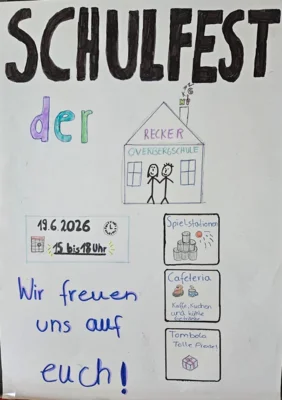 SCHULFEST
der
RECKER
OVERBERGSCHULE
19.6.2026
15 bis 18 Uhr
Spielstationen
Cafeteria
Kaffee, Kuchen
und kalte
Getränke
Tombola
Tolle Preise!
Wir freuen
uns auf
euch!